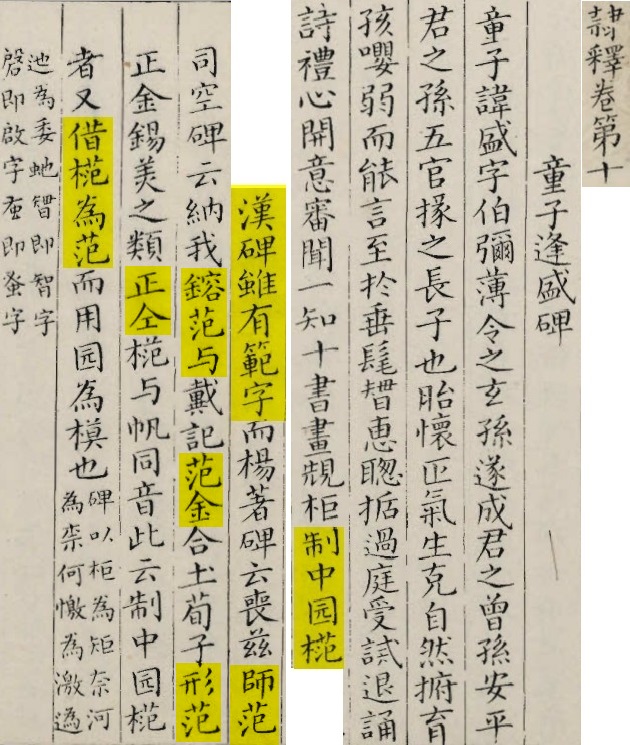 隷釋卷第十
童子逢盛碑
童子諱盛字伯彌薄令之玄孫遂成君之曾孫安平
君之孫五官掾之長子也胎懷正氣生克自然育
孩嬰弱而能言至於垂髦智惠聰哲過庭受試退誦
詩禮心開意審聞一知十書畫規柜制中园
漢碑雖有範字而楊著碑云喪茲師范
司空碑云納我鎔范与戴記范金合土荀子形范
正金錫美之類正仝与帆同音此云制中园
者又借為范而用园為模也
碑以柜為矩奈河
為柰何憿為激
迆為委虵朁即智字
即啟字即蚤字